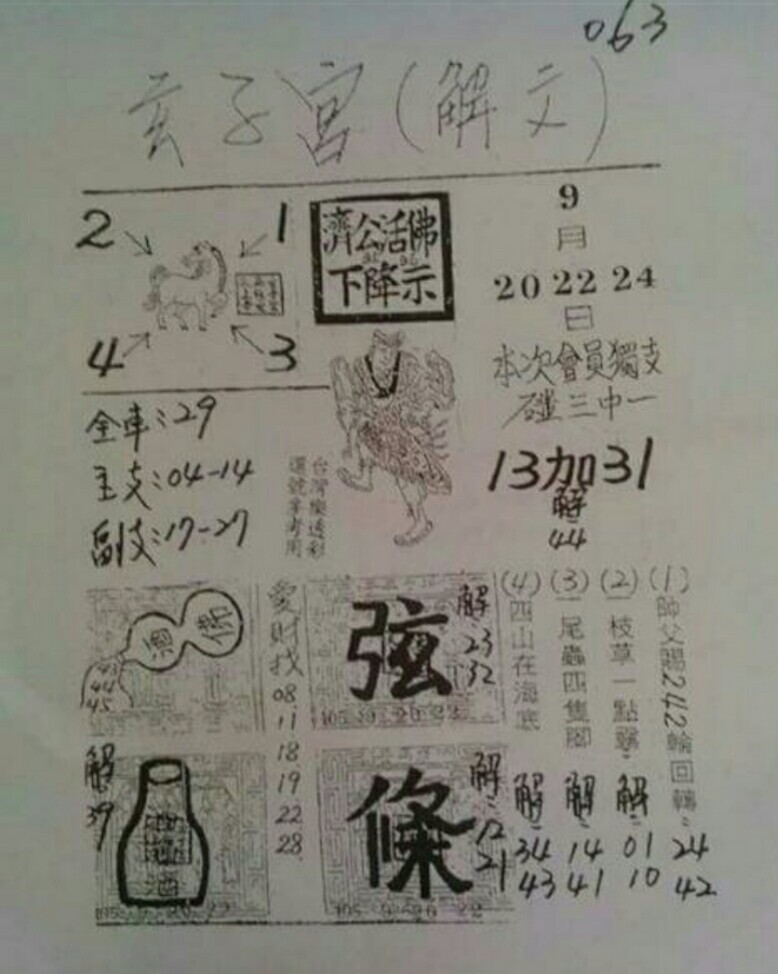 063
玄子宮(解文)
2
1
4
3
濟公活佛
下降示
9
月
20 22 24
日
本次會員獨支
碰三中一
13加31
解
44
全車:29
主支:04-14
副支:17-27
台灣樂透彩
選號參考用
濟
佛
44
45
愛財找
08
11
18
19
22
28
弦
解
23
32
105 9 20 22
(1)
師父賜242輪回轉
24
42
(2)
一枝草一點露
解
01
10
(3)
一尾蟲四隻腳
解
14
41
(4)
四山在海底
解
34
43
解
39
酒
條
解
12
21
105 9 20 22